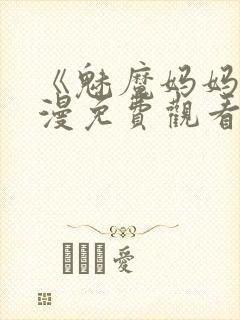 《魅魔妈妈
漫免費觀看
愛